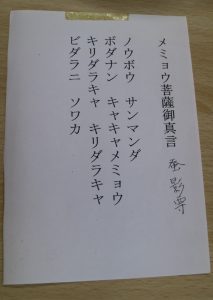 メミョウ菩薩御真言
蚕影尊
ノウボウ サンマンダ
ボダナン キャキャメミョウ
キリダラキャ キリダラキャ
ビダラニ ソワカ